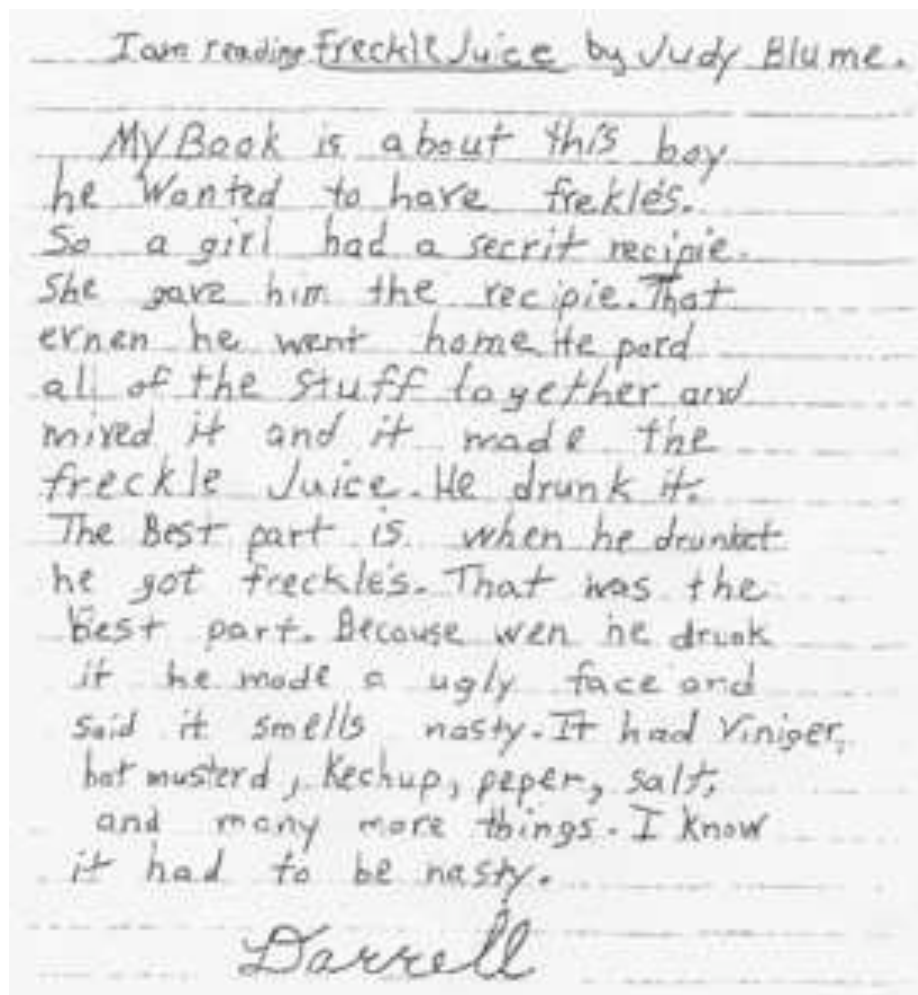 I am reading Freckle Juice by Judy Blume.
My Book is about this boy
he Wanted to have frekles.
So a girl had a secrit recipie.
She gave him the recipie. That
ernen he went home He pord
all of the stuff together and
mixed it and it made the
freckle Juice. He drunk it.
The Best part is when he drunket
he got freckle's. That was the
Best part. Because wen he drunk
it he made a ugly face and
said it smells nasty. It had Viniger,
hot musterd, Kechup, peper, salt,
and many more things. I know
it had to be nasty.
Darrell